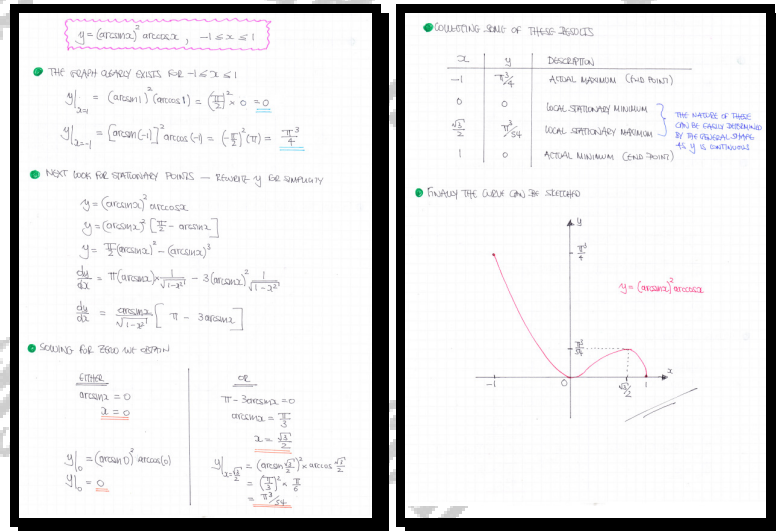 y = (arcsinx)² arccosx , -1 ≤ x ≤ 1
THE GRAPH CLEARLY EXISTS FOR -1 ≤ x ≤ 1
y|x=1 = (arcsin1)²(arccos1) = (π/2)² × 0 = 0
y|x=-1 = [arcsin(-1)]² arccos(-1) = (-π/2)²(π) = π³/4
NEXT LOOK FOR STATIONARY POINTS — REWRITE y FOR SIMPLICITY
y = (arcsinx)² arccosx
y = (arcsinx)² [π/2 - arcsinx]
y = π/2(arcsinx)² - (arcsinx)³
dy/dx = π(arcsinx) × 1/√(1-x²) - 3(arcsinx)² 1/√(1-x²)
dy/dx = arcsinx/√(1-x²) [π - 3arcsinx]
SOLVING FOR ZERO WE OBTAIN
EITHER
arcsinx = 0
x = 0
y|0 = (arcsin0)² arccos(0)
y|0 = 0
OR
π - 3arcsinx = 0
arcsinx = π/3
x = √3/2
y|x=√3/2 = (arcsin √3/2)² × arccos √3/2
= (π/3)² × π/6
= π³/54
COLLECTING SOME OF THESE RESULTS
x y DESCRIPTION
-1 π³/4 ACTUAL MAXIMUM (END POINT)
0 0 LOCAL STATIONARY MINIMUM
√3/2 π³/54 LOCAL STATIONARY MAXIMUM
1 0 ACTUAL MINIMUM (END POINT)
THE NATURE OF THESE
CAN BE EASILY DETERMINED
BY THE GENERAL SHAPE
AS y IS CONTINUOUS
FINALLY THE CURVE CAN BE SKETCHED
y
π³/4
y = (arcsinx)² arccosx
π³/54
-1 0 √3/2 1 x